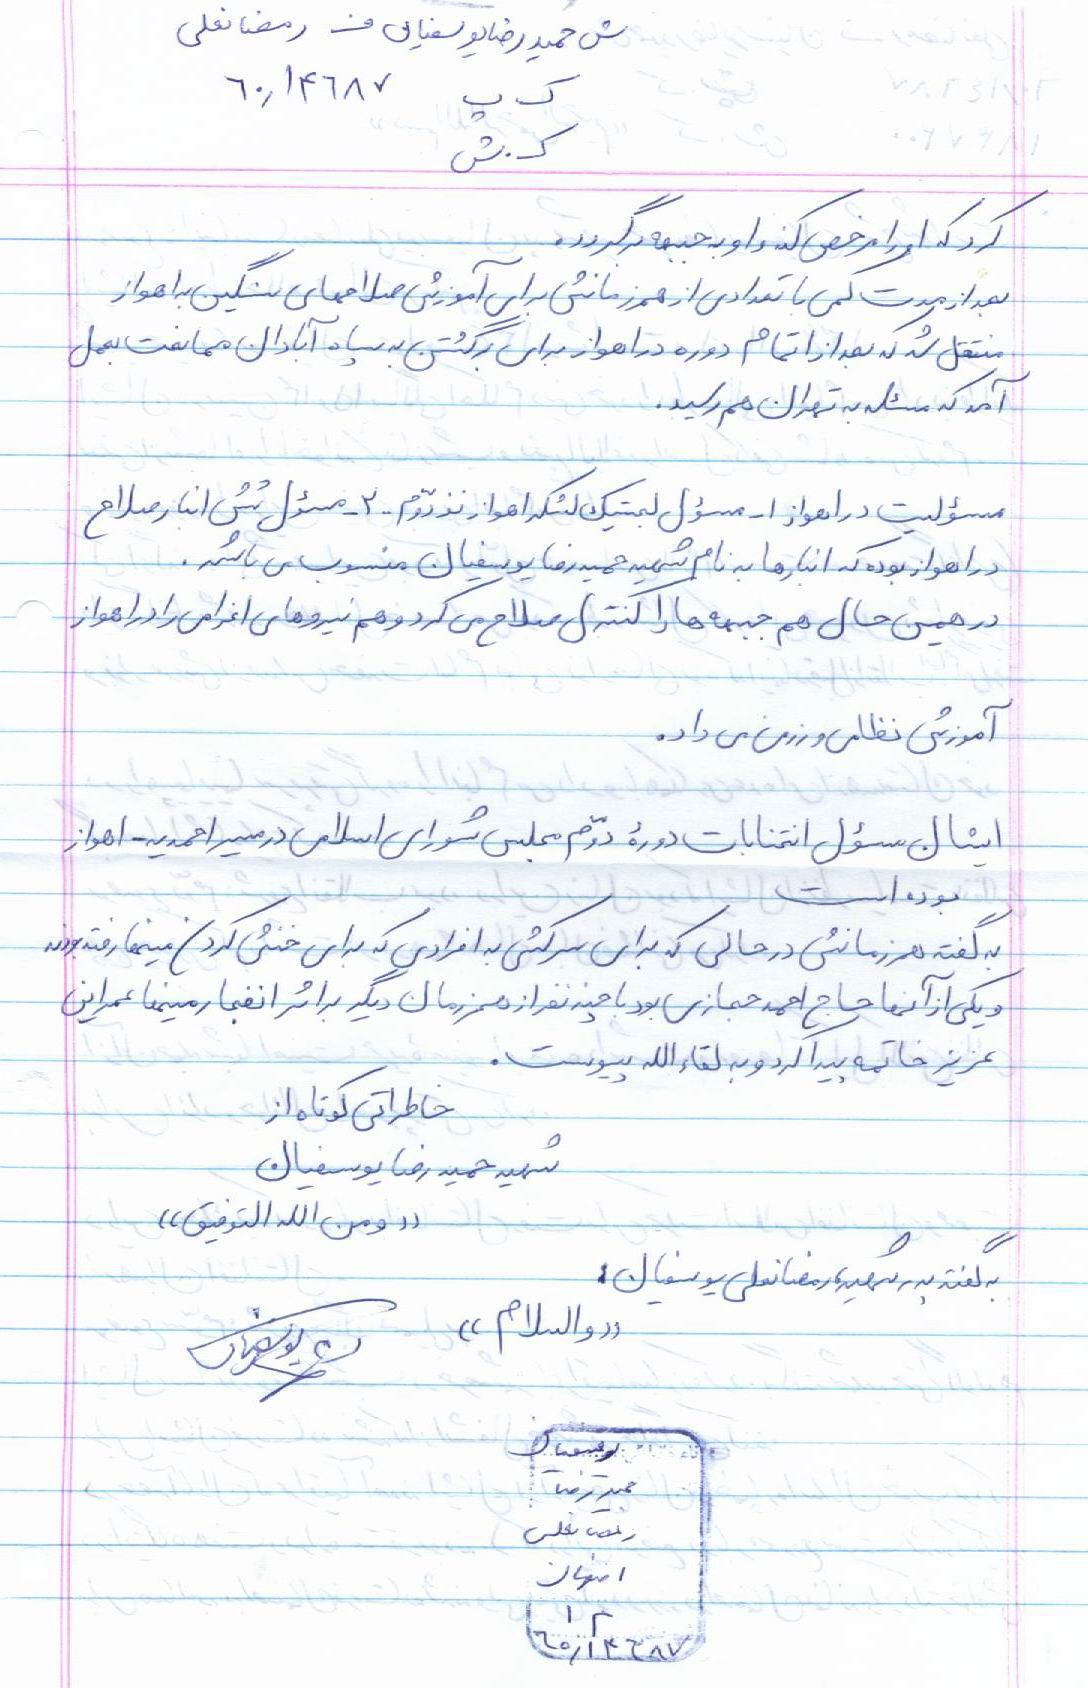 ش حمید رضا یوسفیان ف رمضانعلی
ک پ ۶۰/۱۴۶۸۷
ک.ش
کرد که او را مرخص کند و او به جبهه برگردد.
بعد از مدت کمی با تعدادی از همرزمانش برای آموزش صلاحهای سنگین به اهواز
منتقل شد که بعد از اتمام دوره در اهواز برای برگشتن به سپاه آبادان ممانعت بعمل
آمد که مسئله به تهران هم رسید.
مسؤلیت در اهواز ۱- مسؤل لجستیک لشکر اهواز دوّم - ۲- مسؤل شش انبار صلاح
در اهواز بوده که انبارها به نام شهید حمید رضا یوسفیان منسوب می باشد.
در همین حال هم جبهه ها را کنترل صلاح می کرد و هم نیروهای اعزامی را در اهواز
آموزش نظامی و رزمی می داد.
ایشان مسؤل انتخابات دورۀ دوّم مجلس شورای اسلامی در مسیر احمدیه - اهواز
بوده است
به گفته همرزمانش در حالی که برای سرکشی به افرادی که برای خنثی کردن مینها رفته بودند
و یکی از آنها حاج احمد حجازی بود با چند نفر از همرزمان دیگر بر اثر انفجار مینها عمر این
عزیز خاتمه پیدا کرد و به لقاء الله پیوست.
خاطراتی کوتاه از
شهید حمید رضا یوسفیان
«و من الله التوفیق»
به گفته پدر شهید، رمضانعلی یوسفیان:
«والسلام»
یوسفیان
حمیدرضا
رمضانعلی
اصفهان
۱۲
۶۰/۱۴۶۸۷